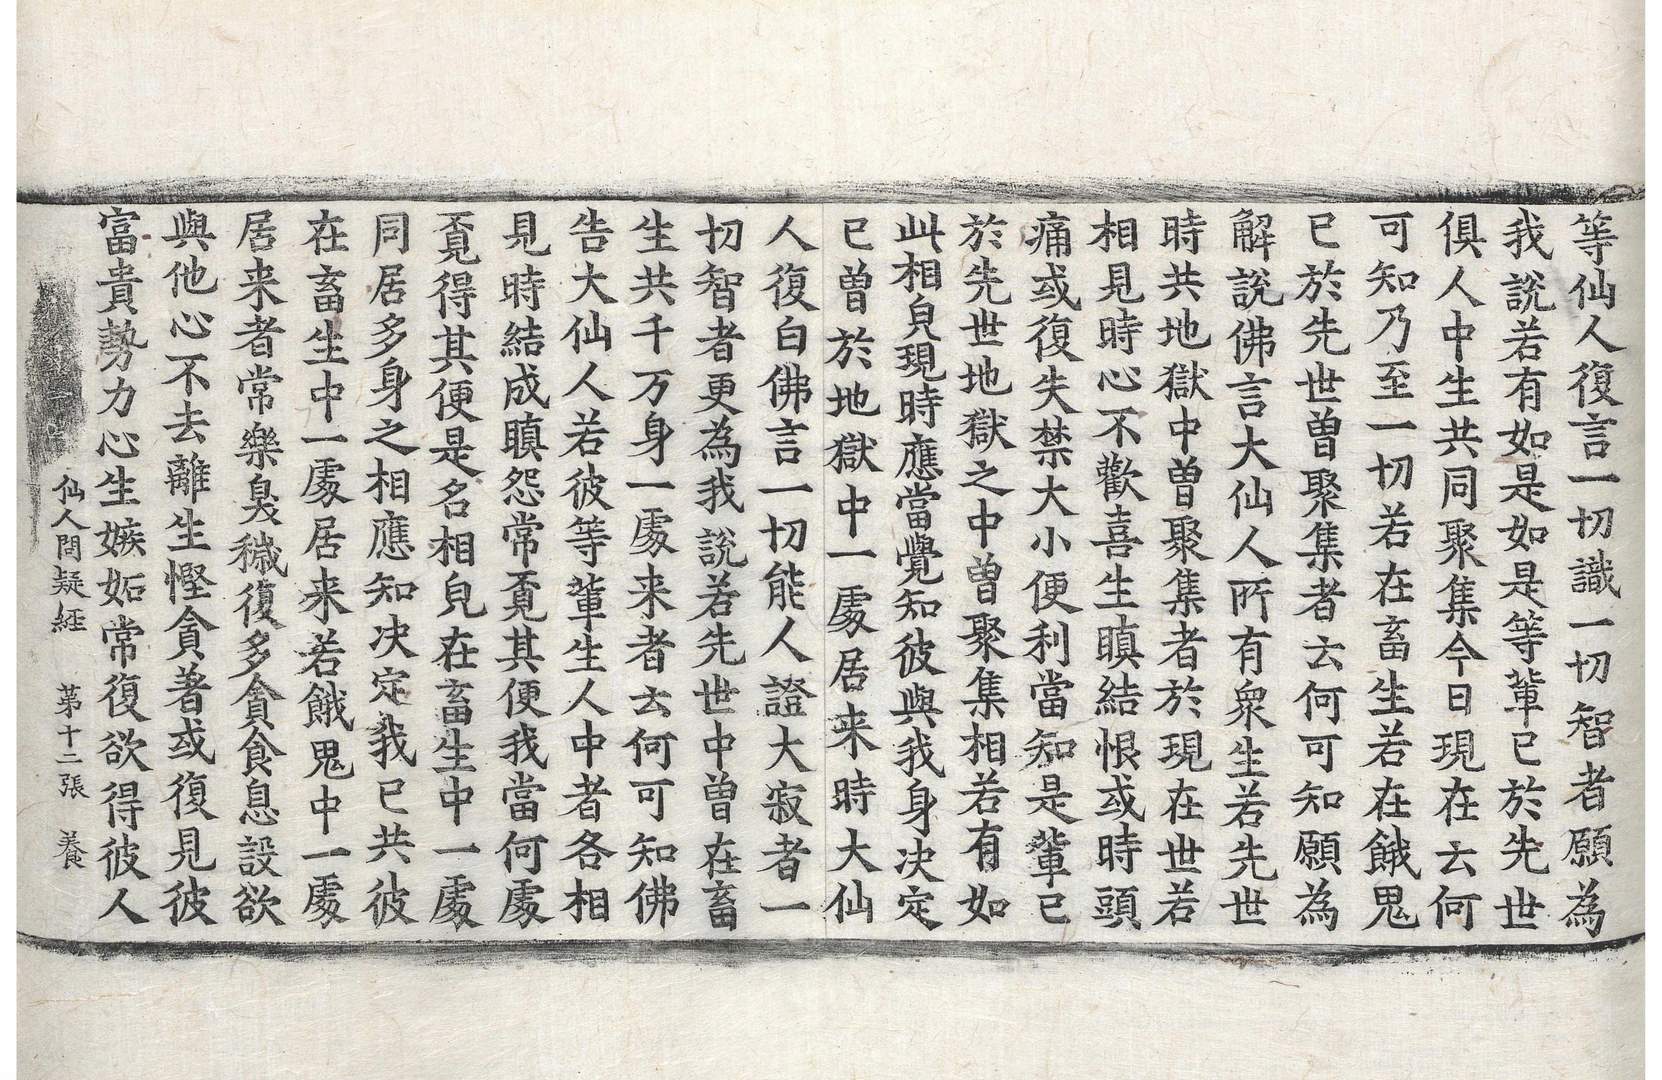 等仙人復言一切識一切智者願為
我說若有如是如是等輩已於先世
俱人中生共同聚集今日現在云何
可知乃至一切若在畜生若在餓鬼
已於先世曾聚集者云何可知願為
解說佛言大仙人所有衆生若先世
時共地獄中曾聚集者於現在世若
相見時心不歡喜生瞋結恨或時頭
痛或復失禁大小便利當知是輩已
於先世地獄之中曾聚集相若有如
此相皃現時應當覺知彼與我身决定
已曾於地獄中一處居来時大仙
人復白佛言一切能人證大寂者一
切智者更為我說若先世中曾在畜
生共千万身一處来者云何可知佛
告大仙人若彼等輩生人中者各相
見時結成瞋怨常覔其便我當何處
覔得其便是名相皃在畜生中一處
同居多身之相應知决定我已共彼
在畜生中一處居来若餓鬼中一處
居来者常樂臭穢復多貪食息設欲
與他心不去離生慳貪著或復見彼
富貴勢力心生嫉妬常復欲得彼人
仙人問疑経 第十二張 養